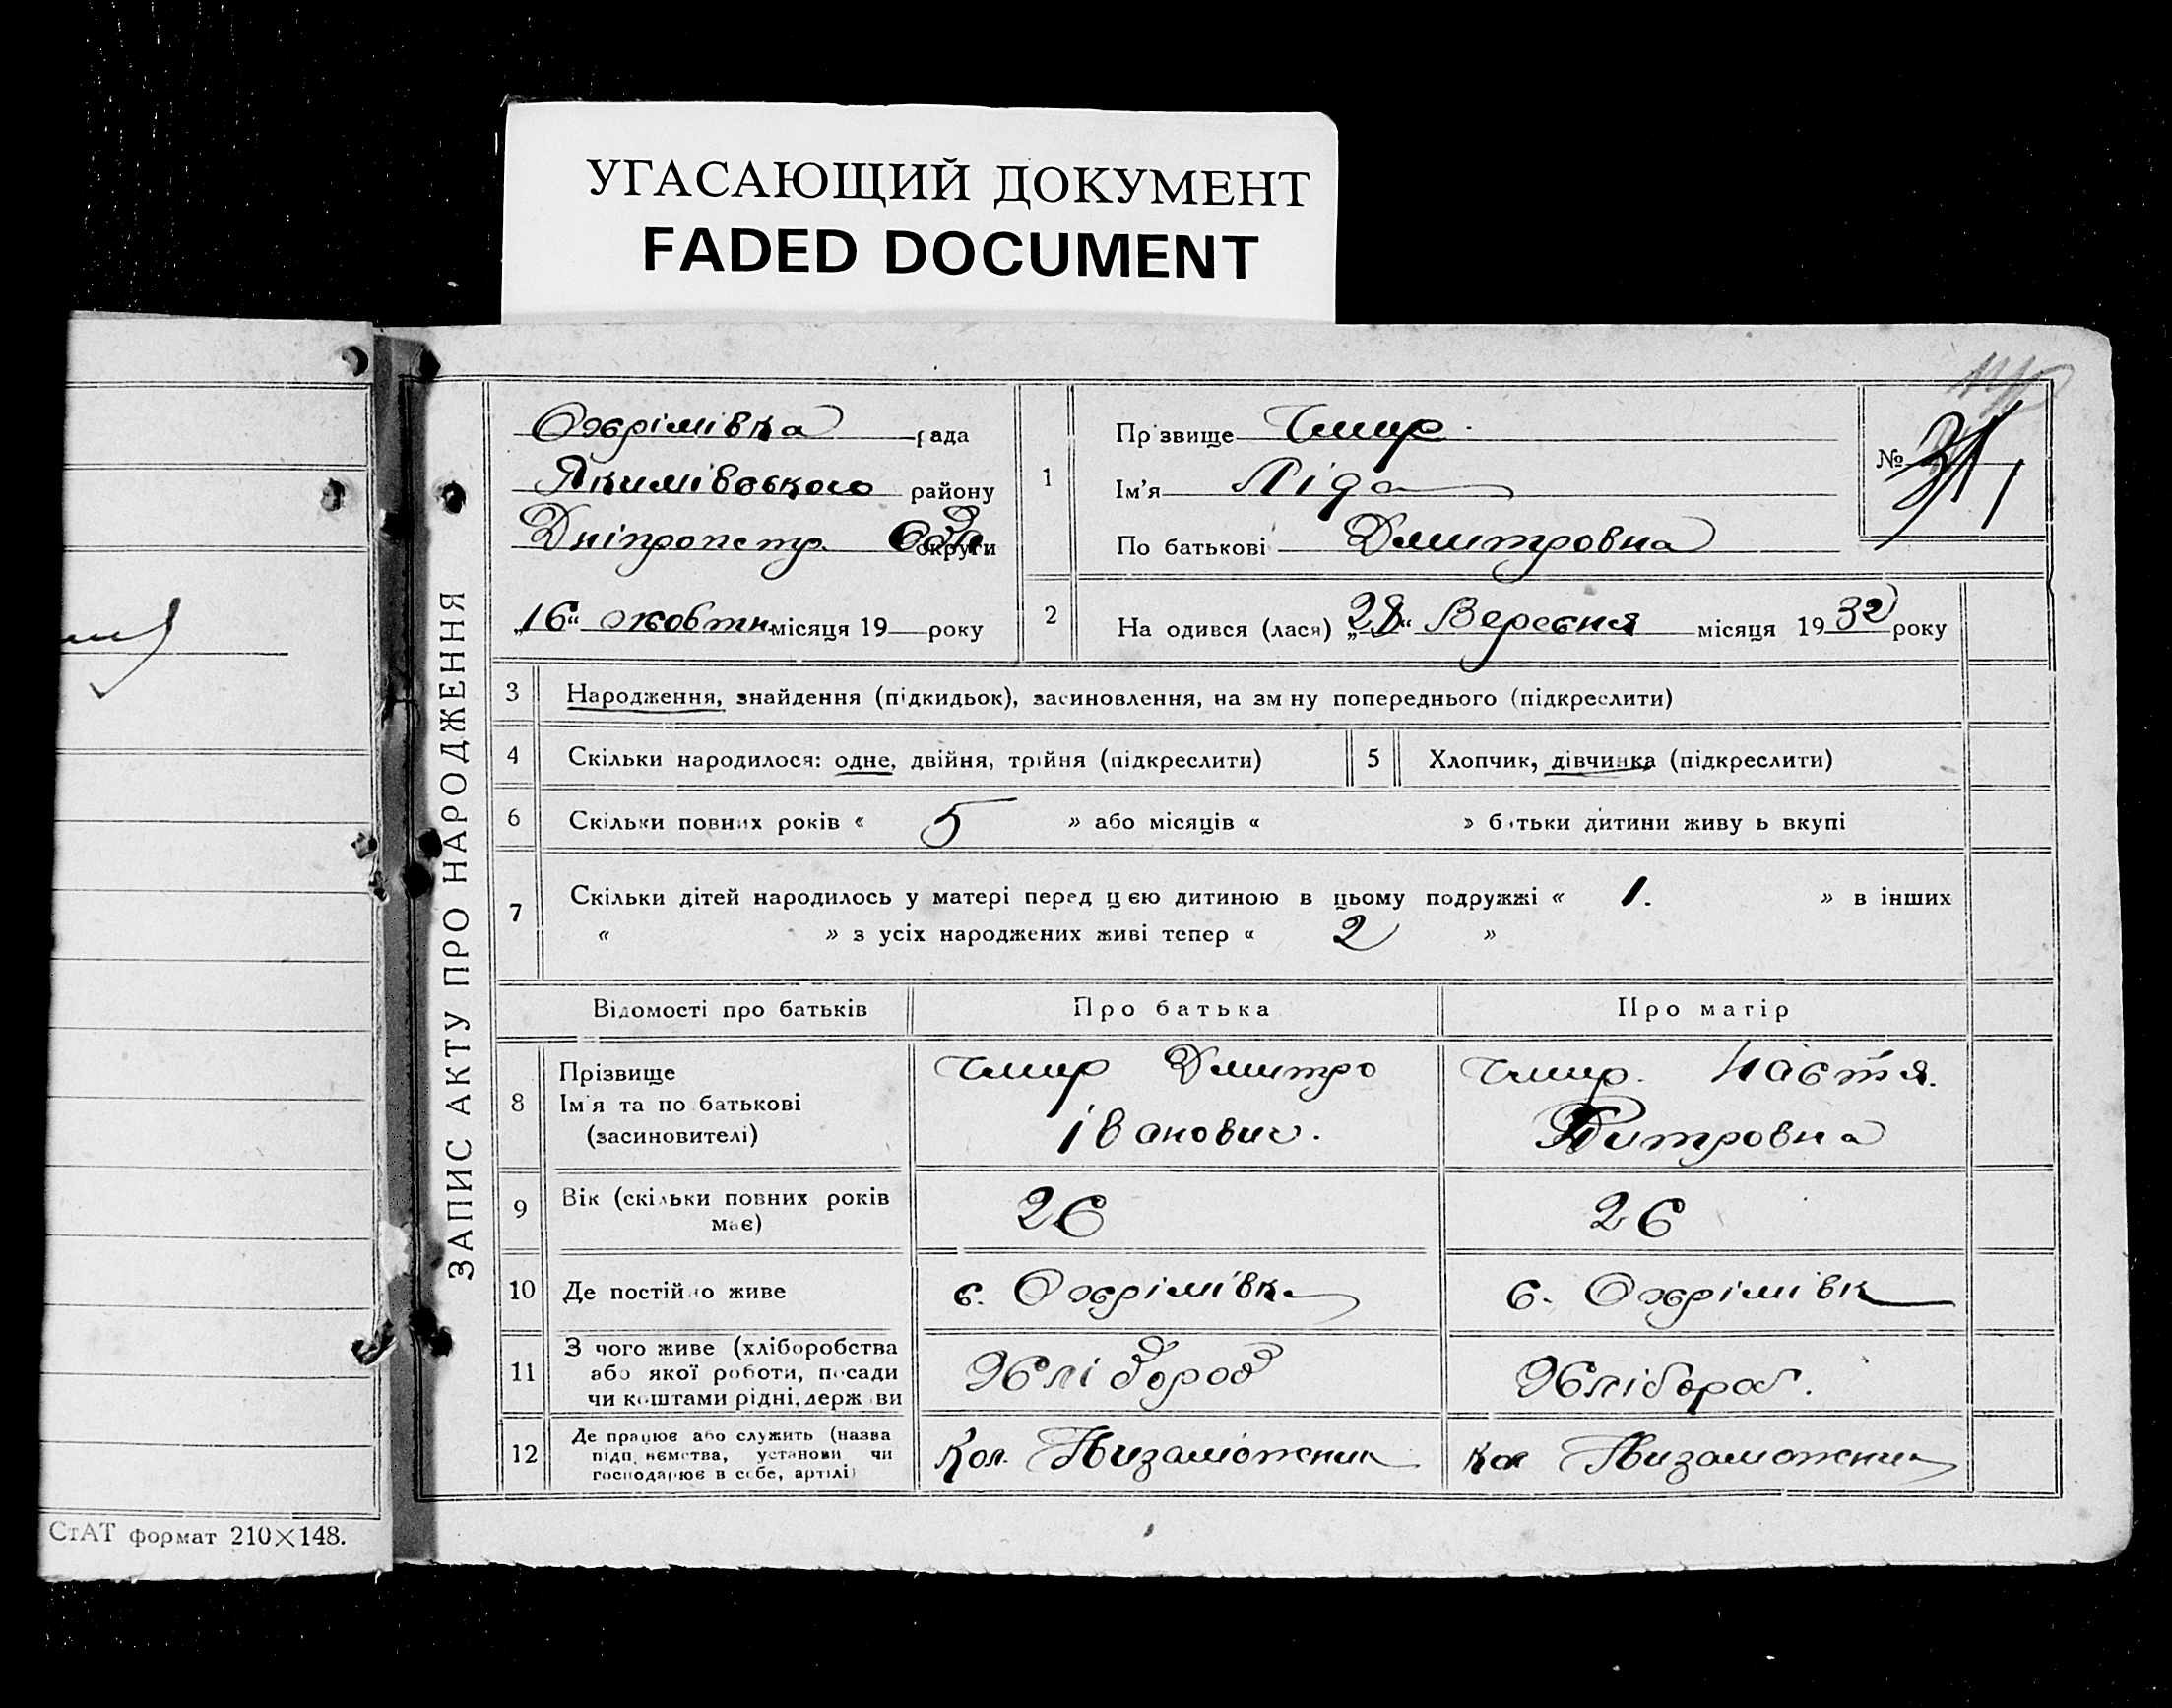 УГАСАЮЩИЙ ДОКУМЕНТ
FADED DOCUMENT
ЗАПИС АКТУ ПРО НАРОДЖЕННЯ
Охрімівка рада
Якимівського району
Дніпропетр. обл округи
„16“ жовтн місяця 19 року
1
Прізвище Чмир.
Ім'я Ліда
По батькові Дмитровна
№ 31
2
На одився (лася) „28“ Вересня місяця 1932 року
3 Народження, знайдення (підкидьок), засиновлення, на зм ну попереднього (підкреслити)
4 Скільки народилося: одне, двійня, трійня (підкреслити)
5 Хлопчик, дівчинка (підкреслити)
6 Скільки повних років « 5 » або місяців « » батьки дитини живу ь вкупі
7 Скільки дітей народилось у матері перед цією дитиною в цьому подружжі « 1. » в інших
« » з усіх народжених живі тепер « 2 »
Відомості про батьків Про батька Про матір
8 Прізвище Ім'я та по батькові (засиновителі)
Чмир Дмитро
Іванович.
Чмир. Настя.
Дмитровна
9 Вік (скільки повних років має) 26 26
10 Де постійно живе с. Охрімівка с. Охрімівк
11 З чого живе (хліборобства
або якої роботи, посади
чи коштами рідні, держ ви
Хлібороб Хлібороб.
12 Де працює або служить (назва
підп иємства, установи чи
господарює в себе, артілі)
Кол. Низаможник Кол Низаможник
СтАТ формат 210×148.